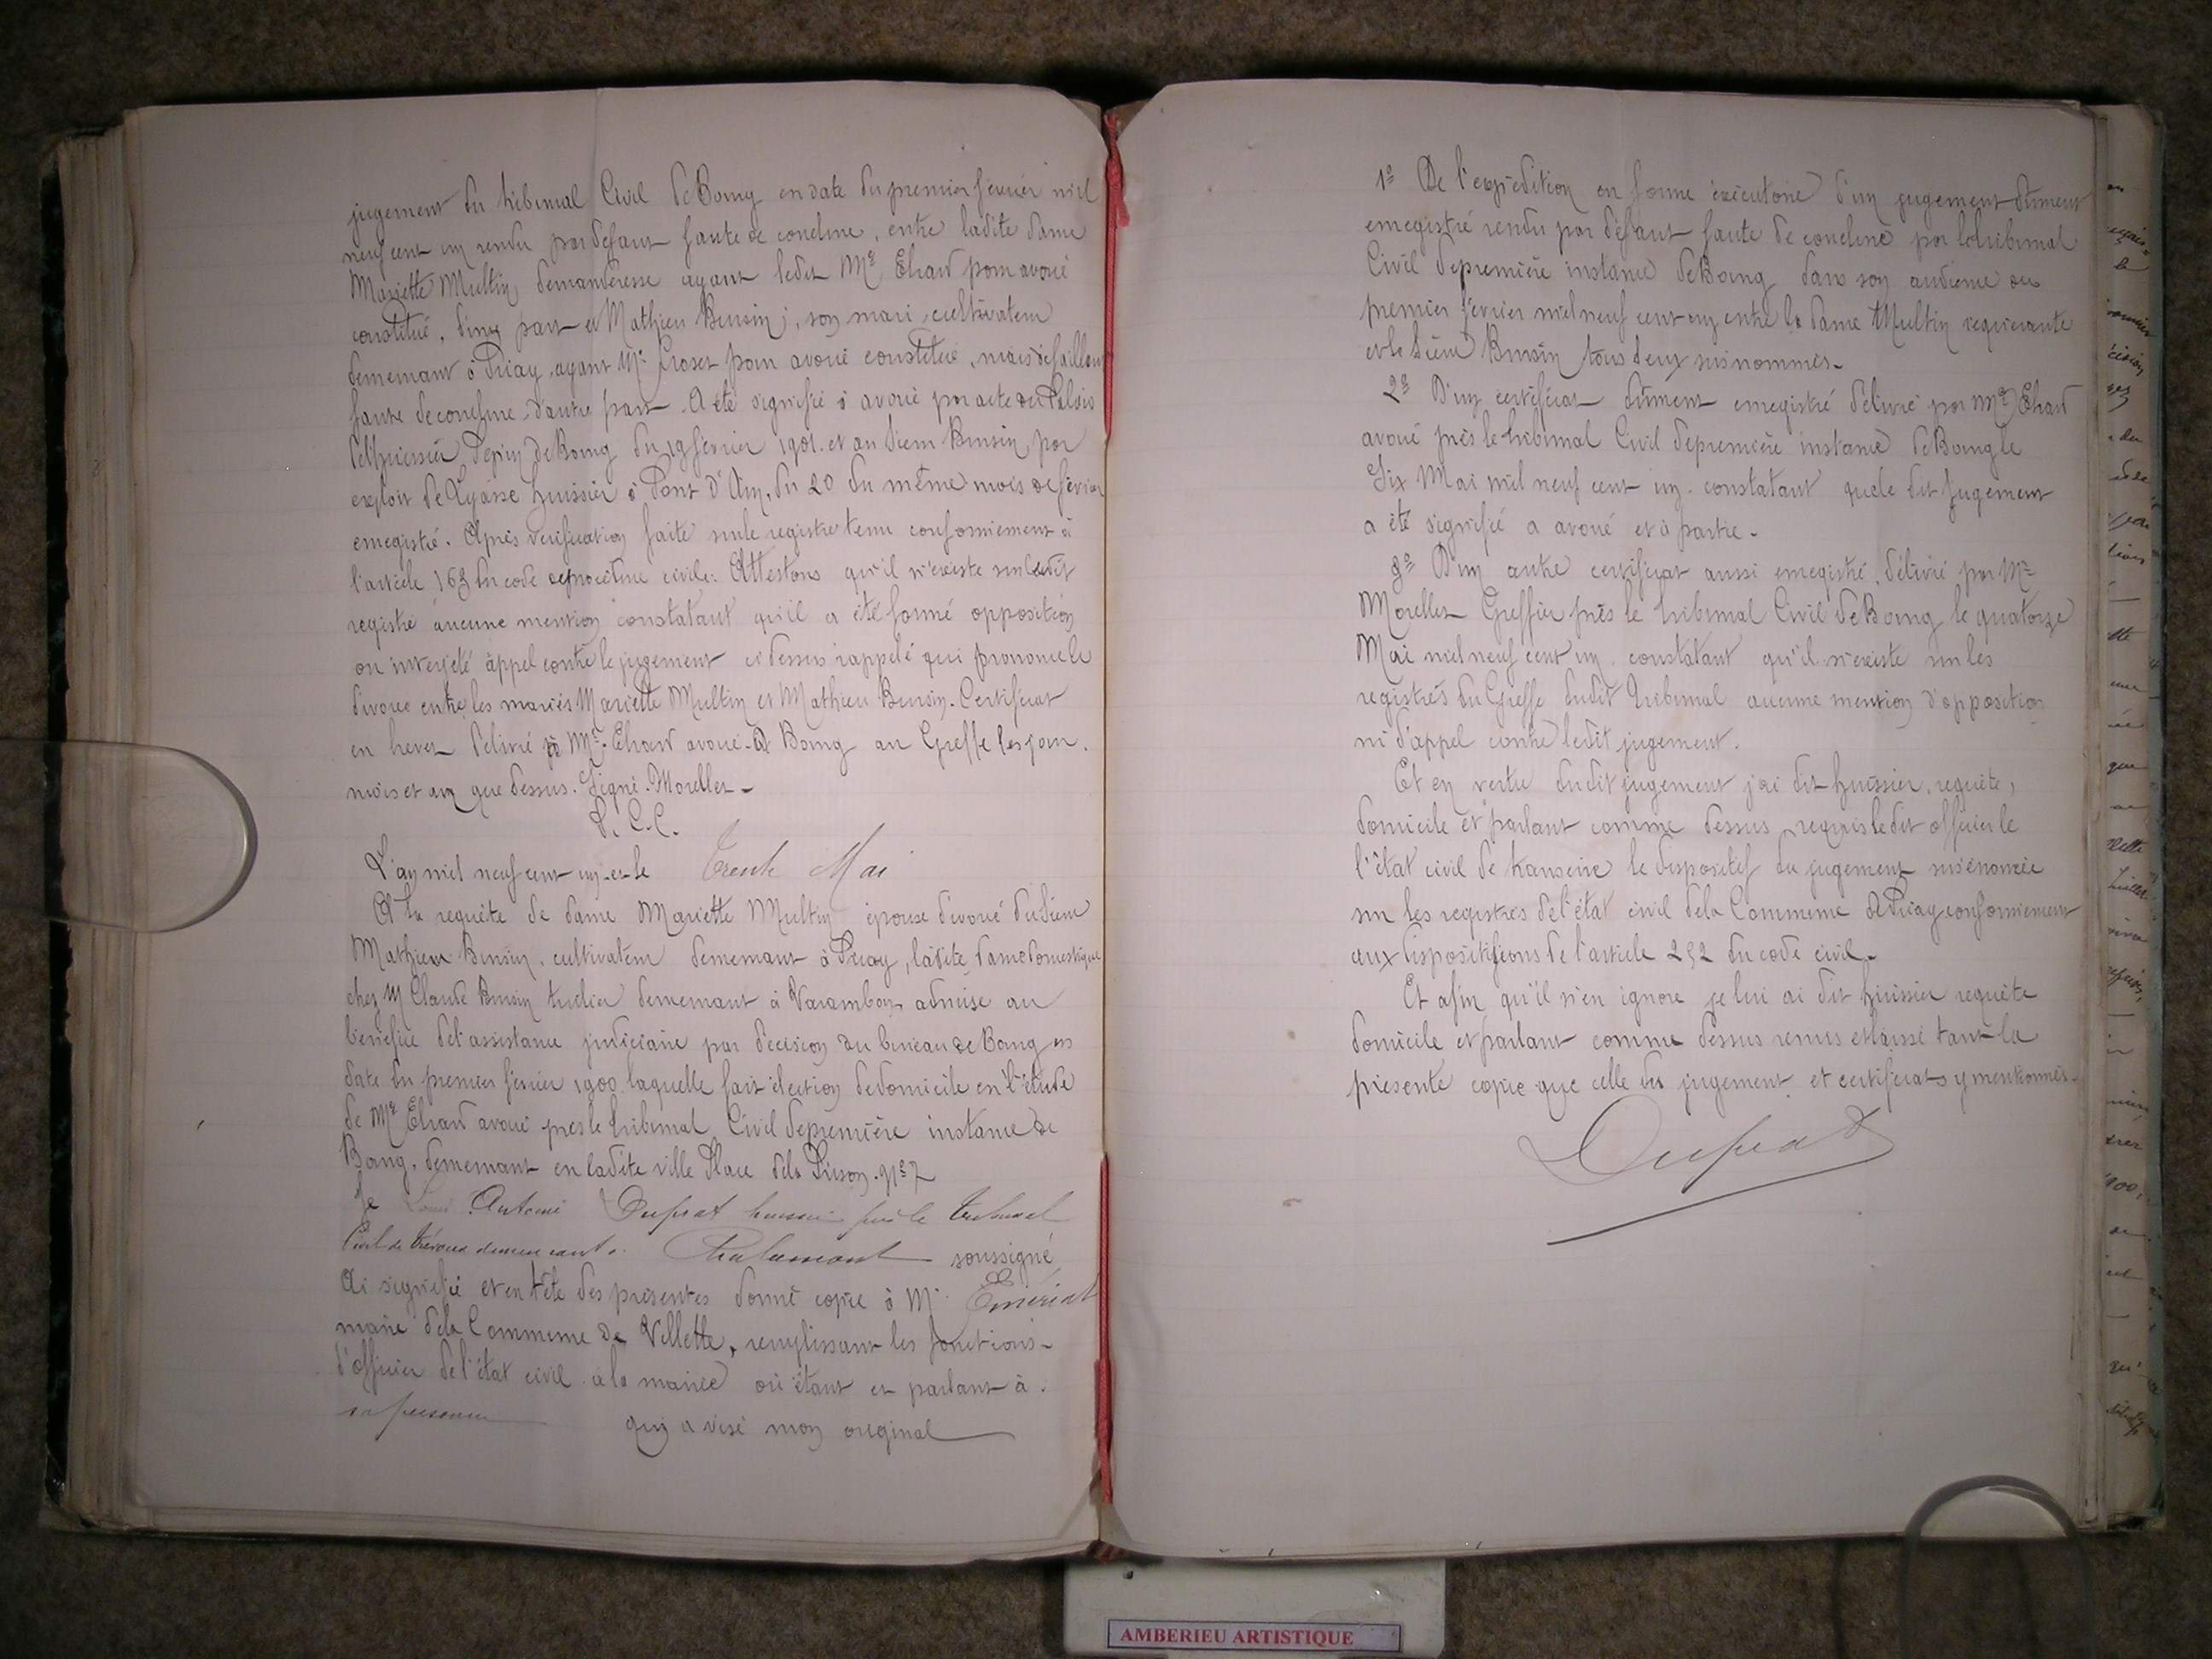 jugement du tribunal Civil de Bourg en date du premier février mil
neuf cent un rendu par defaut faute de conclure, entre ladite dame
Mariette Multin, demanderesse ayant ledit Me Chard pour avoué
constitué, d'une part et Mathieu Bunsin, son mari, cultivateur
demeurant à Priay, ayant Me Croset pour avoué constitué, mais défaillant
faute de conclure, d'autre part. A été signifié à avoué par acte du Palais
de l'huissier Pepin de Bourg du 19 février 1901. et au Sieur Bunsin, par
exploit de huissier à Pont d'Ain, du 20 du même mois de février
enregistré. Après vérification faite sur le registre tenu conformément à
l'article 163 du code de procédure civile: Attestons qu'il n'existe sur ledit
registre aucune mention constatant qu'il a été formé opposition
ou interjeté appel contre le jugement ci dessus rappelé qui prononce le
divorce entre les mariés Mariette Multin et Mathieu Bunsin. Certificat
en brevet délivré à Me Chard avoué à Bourg au Greffe les jour,
mois et an que dessus. Signé. Morellet
P. C. C.
L'an mil neuf cent un et le Trente Mai
A la requête de dame Mariette Multin épouse divorcé du Sieur
Mathieu Bunsin, cultivateur demeurant à Priay, ladite dame domestique
chez M Claude Bunsin demeurant à Varambon admise au
bénéfice de l'assistance judiciaire par décision du bureau de Bourg en
date du premier février 1900 laquelle fait élection de domicile en l'étude
de Me Chard avoué près le tribunal Civil de première instance de
Bourg, demeurant en ladite ville Place de la Prison. No 7
Je Louis Antoine Duprat huissier près le tribunal
Civil de Trévoux demeurant à Chalamont soussigné
Ai signifié et en tête des présentes donné copie à Mr Emériat
maire de la Commune de Villette, remplissant les fonctions
d'officier de l'état civil à la mairie où étant et parlant à
sa personne qui a visé mon original
1o De l'expédition en forme éxécutoire d'un jugement dûment
enregistré rendu par défaut faute de conclure par le tribunal
Civil de première instance de Bourg dans son audience du
premier février mil neuf cent un entre la dame Multin requérante
et le Sieur Bunsin tous deux susnommés.
2o D'un certificat dûment enregistré délivré par Me Chard
avoué près le tribunal Civil de première instance de Bourg le
Six Mai mil neuf cent un constatant que le dit jugement
a été signifié a avoué et à partie.
3o D'un autre certificat aussi enregistré, délivré par Me
Morellet Greffier près le tribunal Civil de Bourg le quatorze
Mai mil neuf cent un constatant qu'il n'existe sur les
registres du Greffe dudit Tribunal aucune mention d'opposition
ni d'appel contre ledit jugement.
Et en vertu dudit jugement j'ai dit huissier, requête,
domicile et parlant comme dessus requis le dit officier de
l'état civil de transcrire le dispositif du jugement susénoncé
sur les registres de l'état civil de la Commune de Priay conformément
aux dispositions de l'article 252 du code civil.
Et afin qu'il n'en ignore je lui ai dit huissier requête
domicile et parlant comme dessus remis et laissé tant la
présente copie que celle du jugement et certificats y mentionnés.
Duprat
AMBERIEU ARTISTIQUE